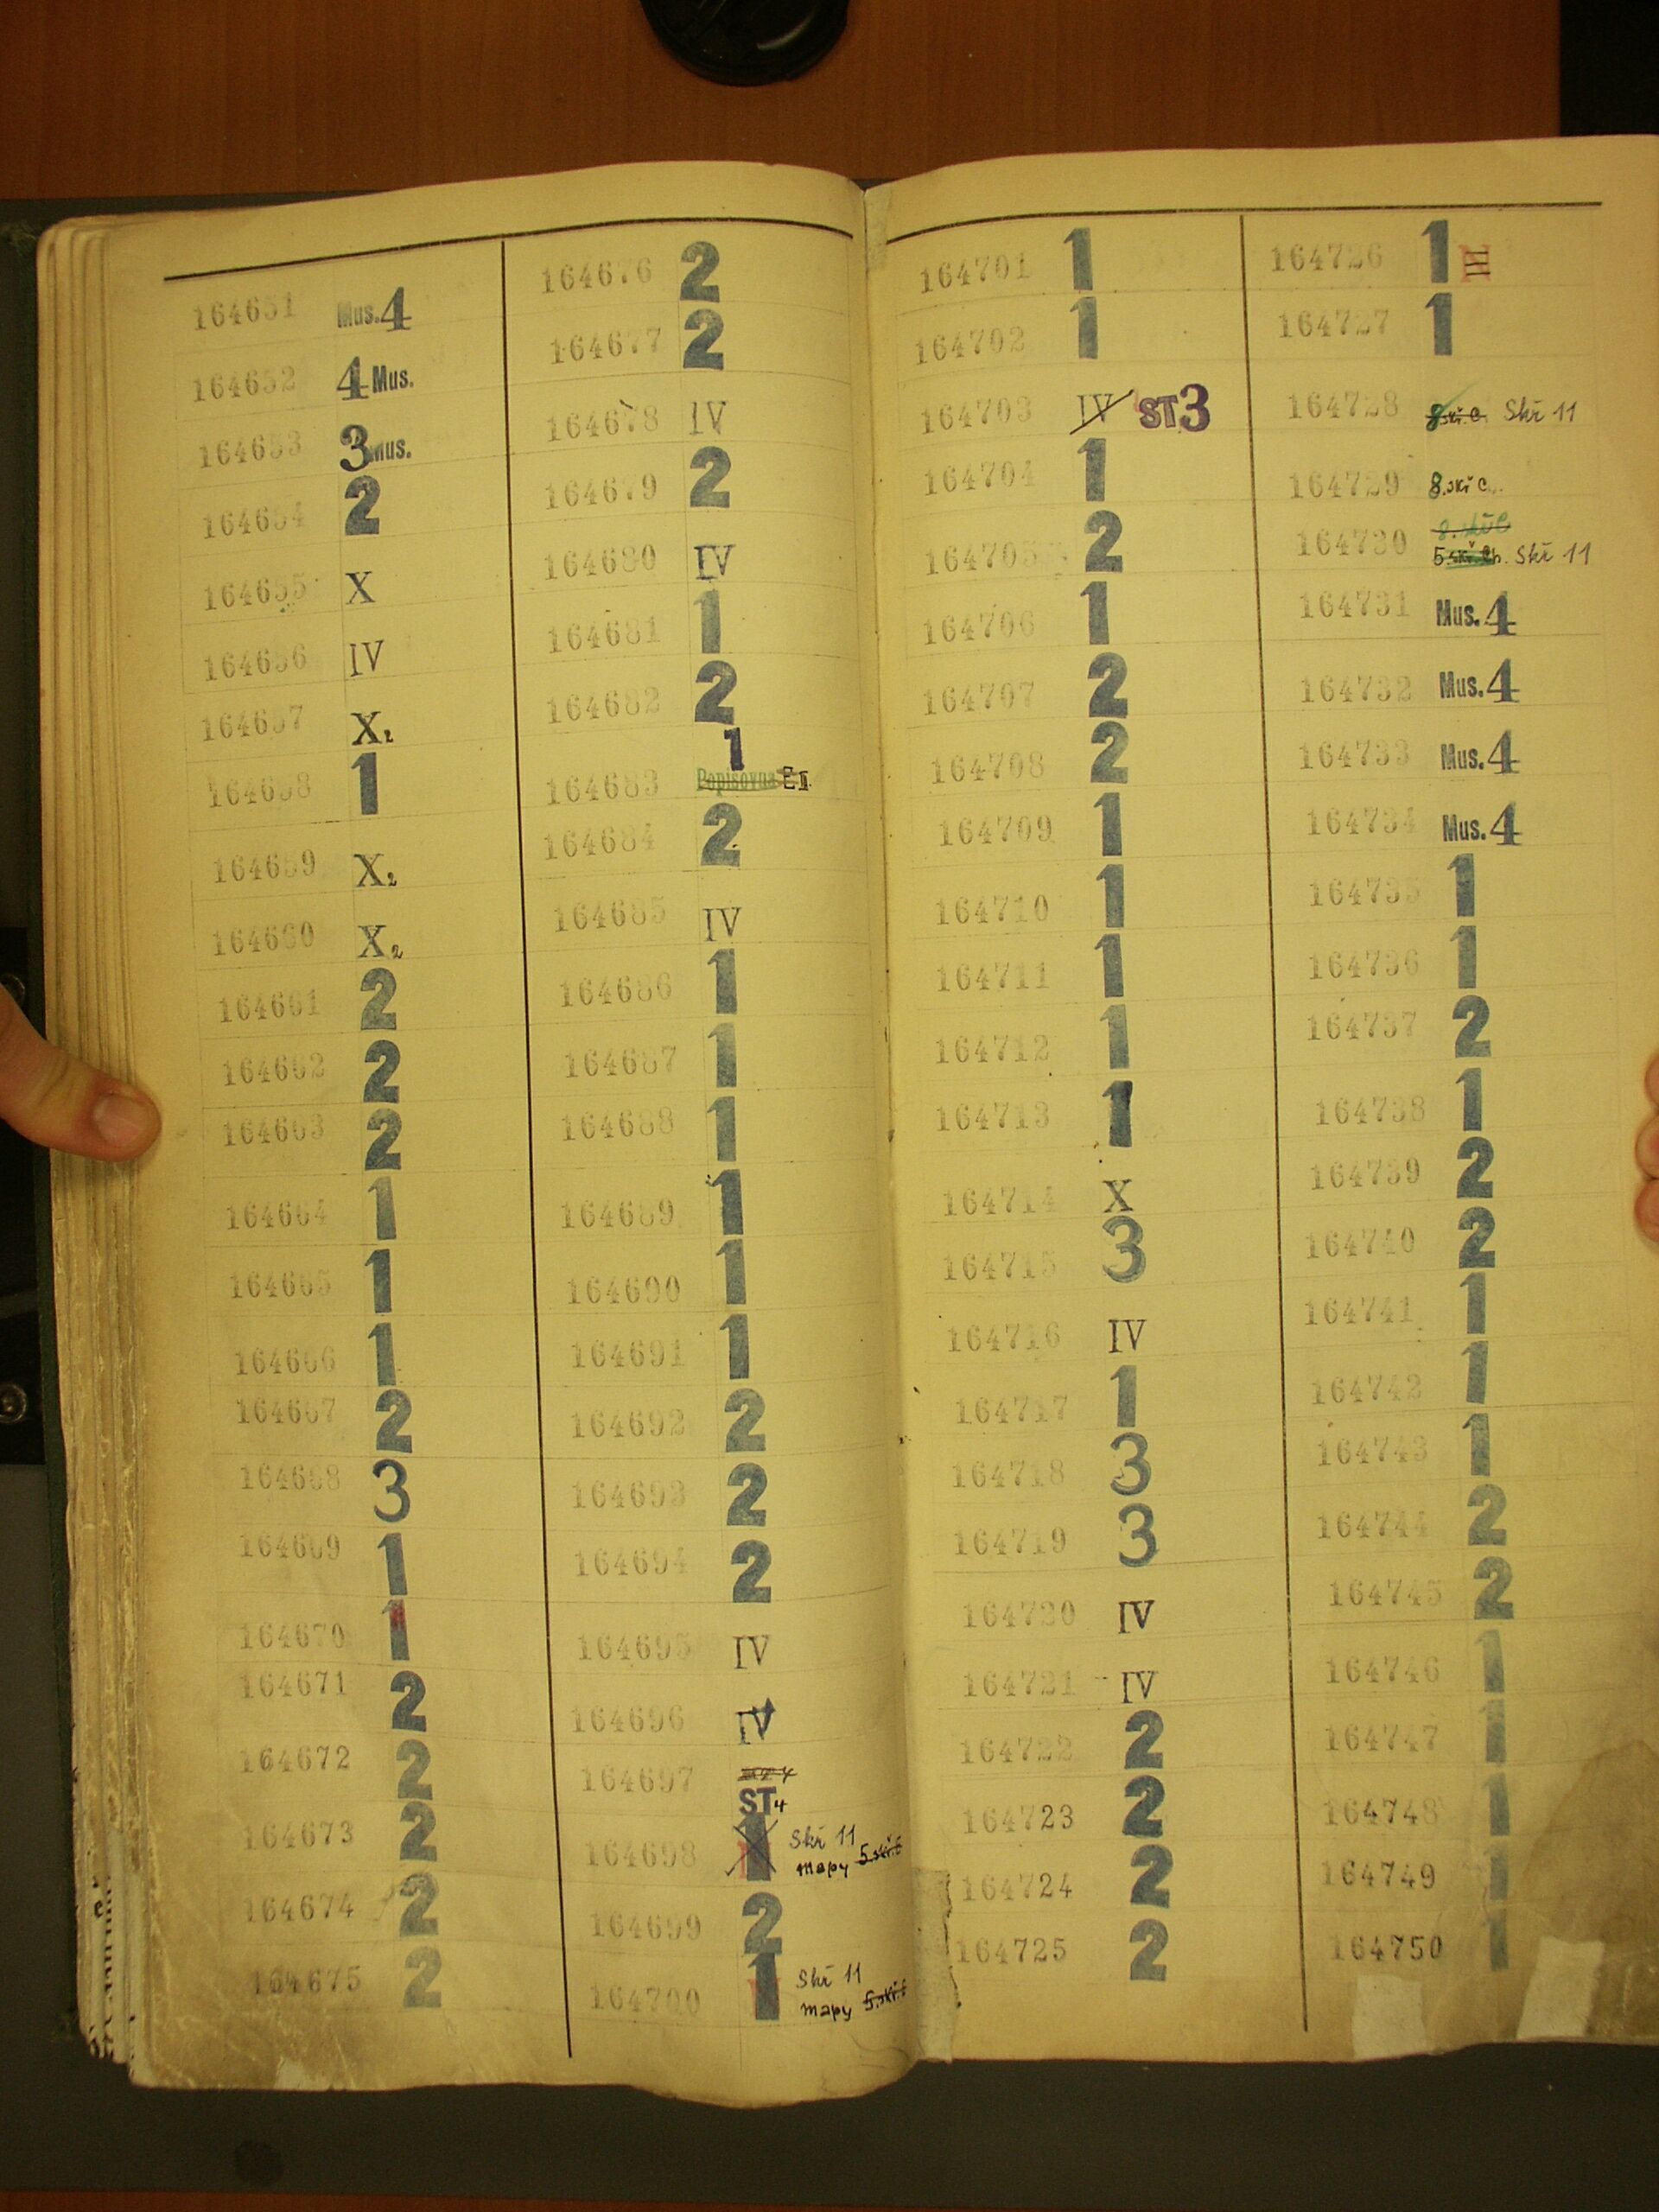 164651 Mus. 4
164652 4 Mus.
164653 3 Mus.
164654 2
164655 X
164656 IV
164657 X2
164658 1
164659 X2
164660 X2
164661 2
164662 2
164663 2
164664 1
164665 1
164666 1
164667 2
164668 3
164669 1
164670 1
164671 2
164672 2
164673 2
164674 2
164675 2
164676 2
164677 2
164678 IV
164679 2
164680 IV
164681 1
164682 2
1
164683 Popisovna E II.
164684 2
164685 IV
164686 1
164687 1
164688 1
164689 1
164690 1
164691 1
164692 2
164693 2
164694 2
164695 IV
164696 IV
164697
ST4
164698 1 Skř 11
mapy 5.skř.č
164699 2
164700 1 Skř 11
mapy 5.skř.č
164701 1
164702 1
164703 IV ST3
164704 1
164705 2
164706 1
164707 2
164708 2
164709 1
164710 1
164711 1
164712 1
164713 1
164714 X
164715 3
164716 IV
164717 1
164718 3
164719 3
164720 IV
164721 IV
164722 2
164723 2
164724 2
164725 2
164726 1 III
164727 1
164728 8.skř.C. Skř 11
164729 8.skř C.
8.skř C
164730 5.skř. Skř 11
164731 Mus. 4
164732 Mus. 4
164733 Mus. 4
164734 Mus. 4
164735 1
164736 1
164737 2
164738 1
164739 2
164740 2
164741 1
164742 1
164743 1
164744 2
164745 2
164746 1
164747 1
164748 1
164749 1
164750 1